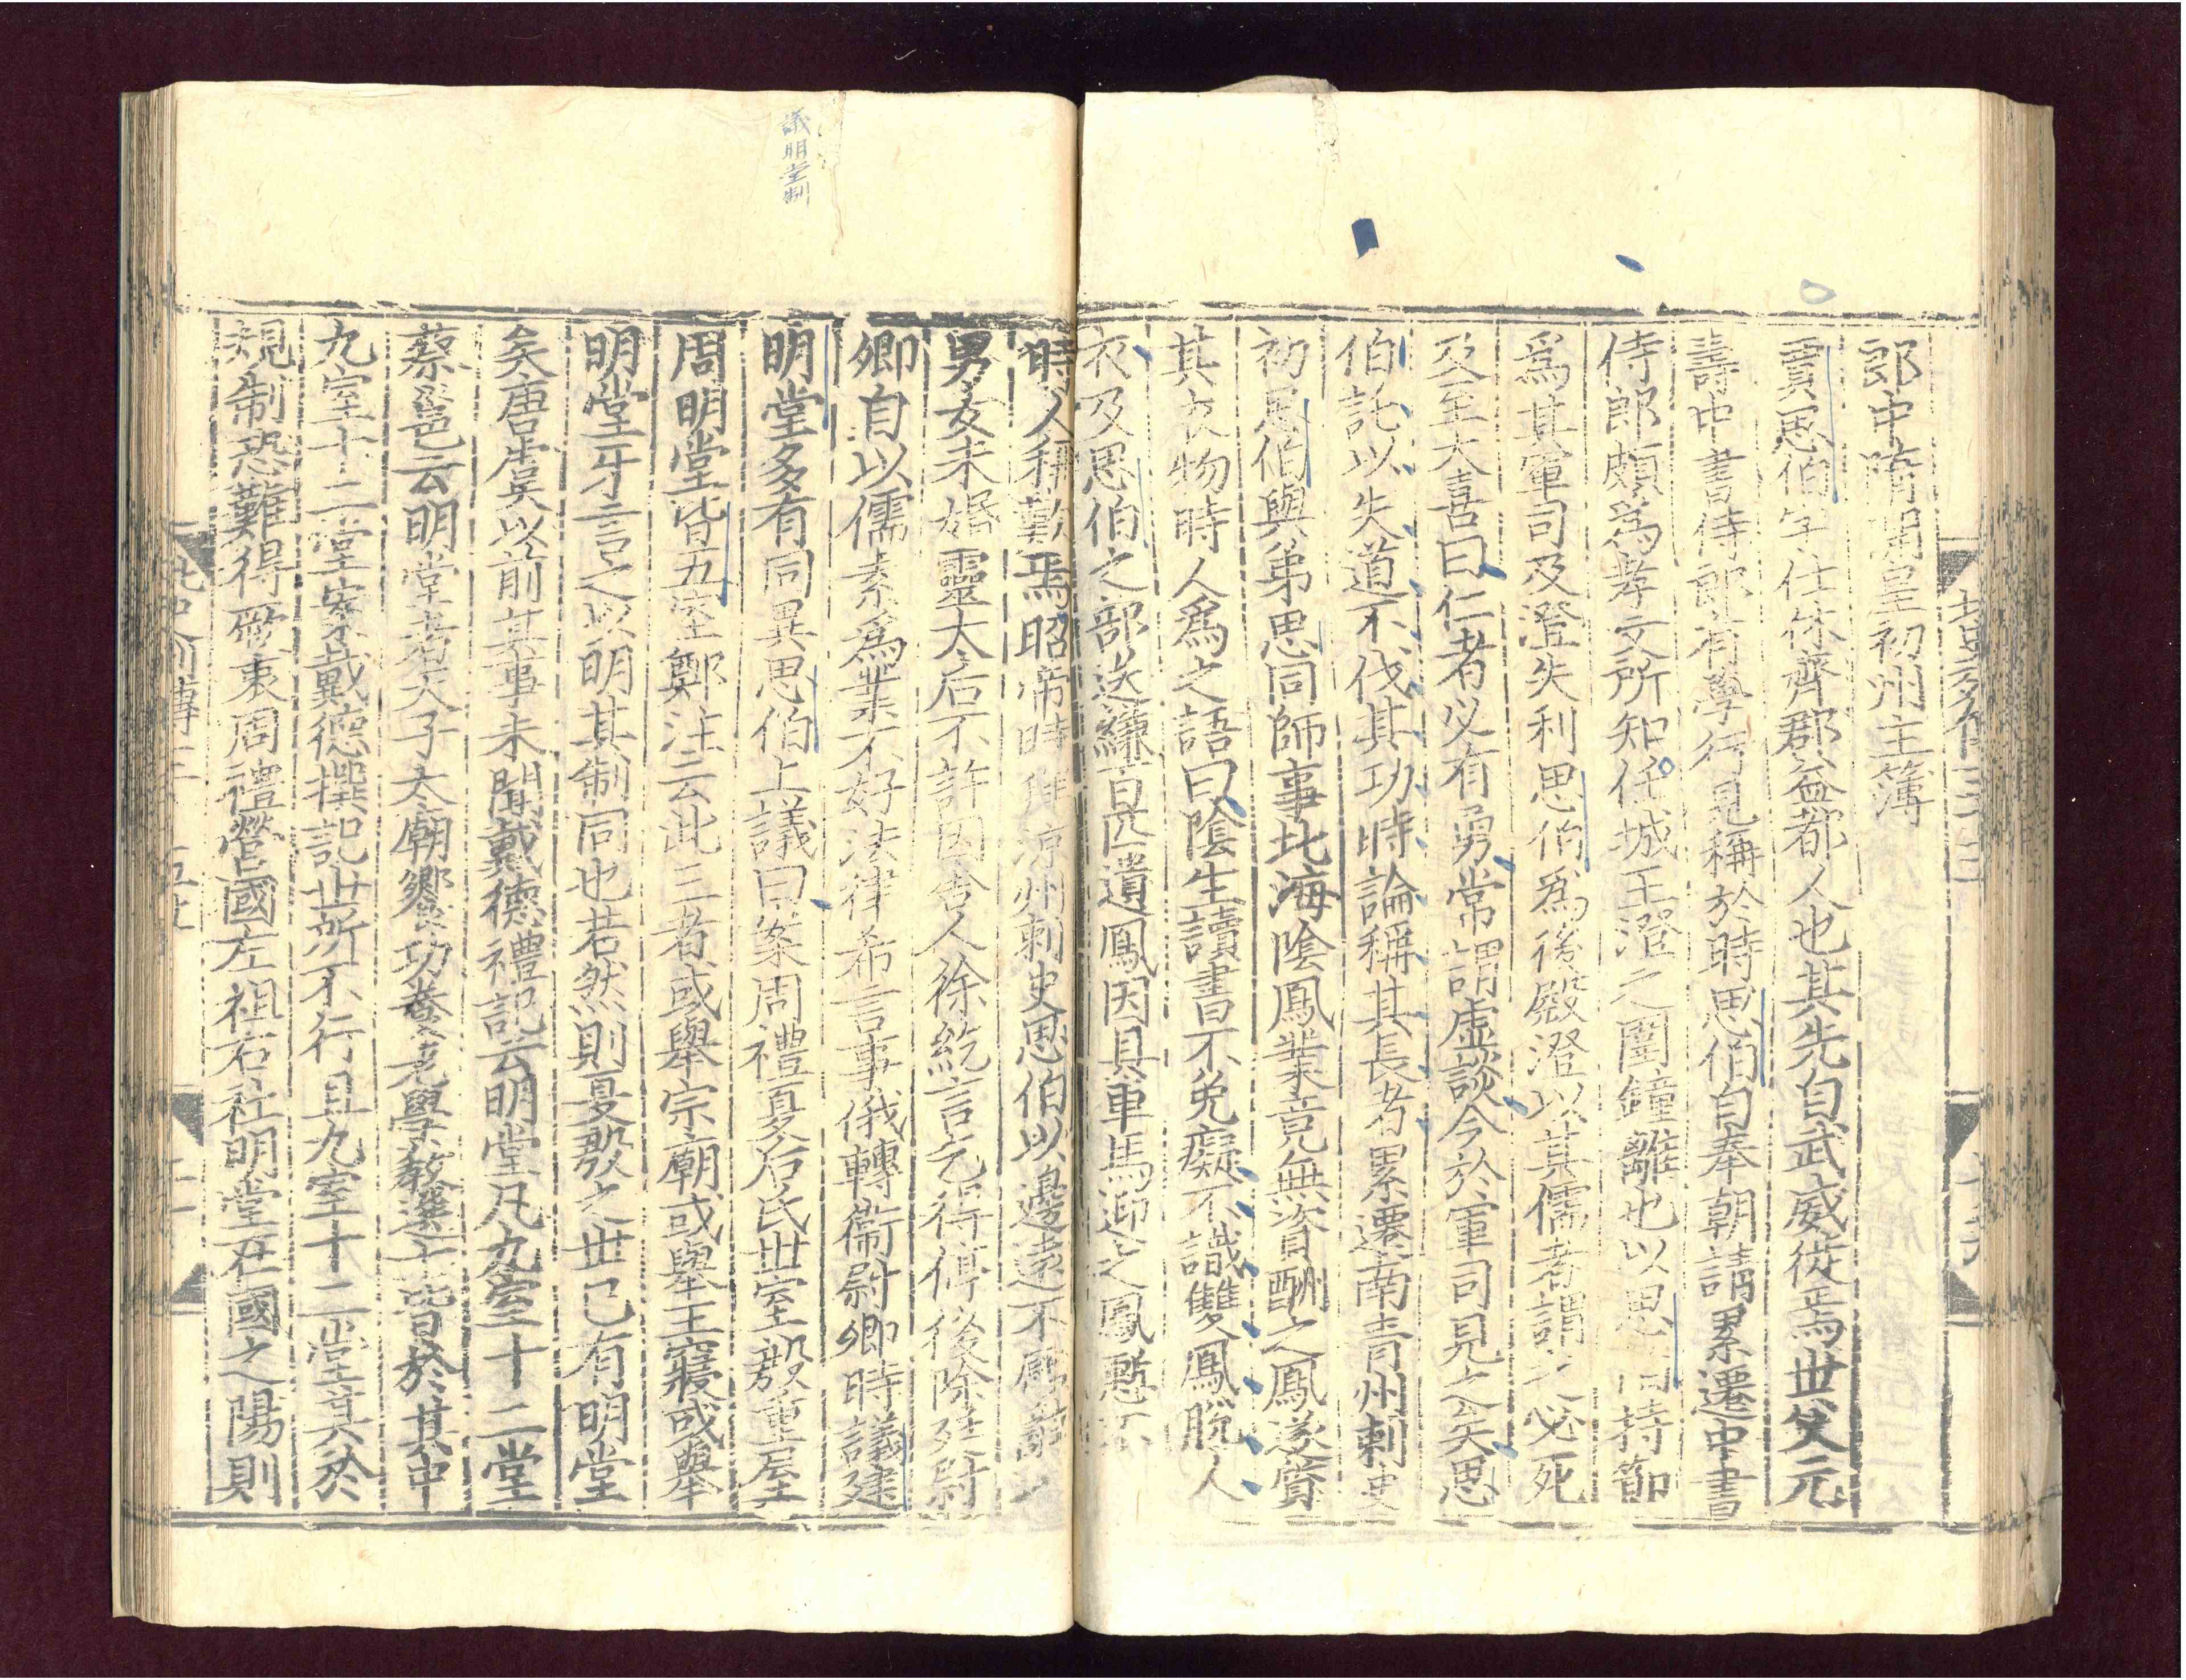 郎中隋開皇初州主簿
賈思伯字仕休齊郡益都人也其先自武威徙焉世父元
壽中書侍郎有學行見稱於時思伯自奉朝請累遷中書
侍郎頗爲孝文所知任城王澄之圍鐘離也以思伯持節
爲其軍司及澄失利思伯爲後殿澄以其儒者謂之必死
及至大喜曰仁者必有勇常謂虛談今於軍司見之矣思
伯託以失道不伐其功時論稱其長者累遷南青州刺史
初思伯與弟思同師事北海陰鳳業竟無資酬之鳳遂質
其衣物時人爲之語曰陰生讀書不免癡不識雙鳳脫人
衣及思伯之部送縑百匹遺鳳因具車馬迎之鳳慙不
時人稱歎焉昭帝時拜涼州刺史思伯以邊遠不願辭以
男女未婚靈太后不許因舍人徐紇言乞得停後除廷尉
卿自以儒素爲業不好法律希言事俄轉衞尉卿時議建
明堂多有同異思伯上議曰案周禮夏后氏世室殷重屋
周明堂皆五室鄭注云此三者或舉宗廟或舉王寢或舉
明堂牙言之以明其制同也若然則夏殷之世已有明堂
矣唐虞以前其事未聞戴德禮記云明堂凡九室十二堂
蔡邕云明堂者天子太廟饗功養老學教選士皆於其中
九室十二堂案戴德撰記世所不行且九室十二堂其於
規制恐難得厥衷周禮營國左祖右社明堂在國之陽則
議明堂制